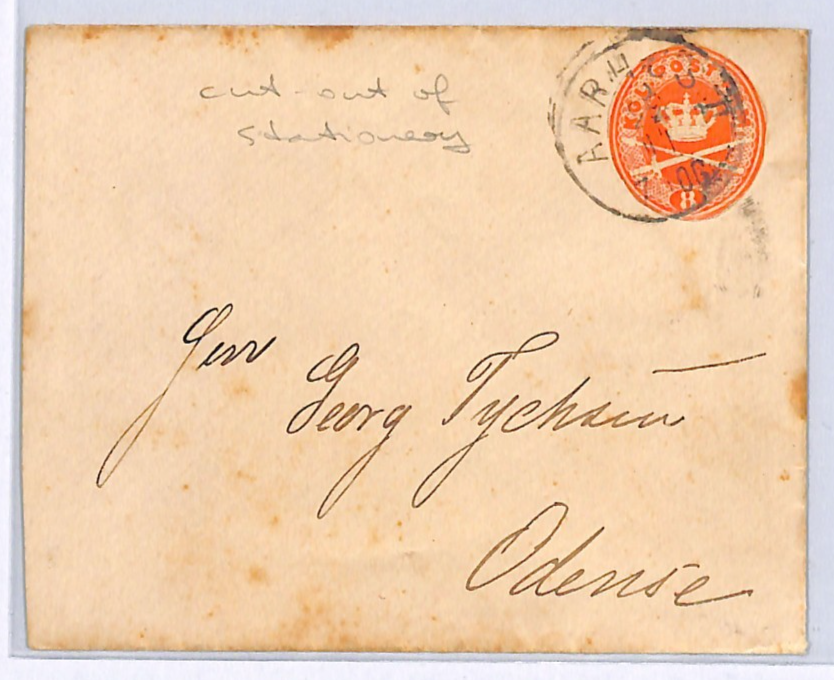 cut-out of
stationery
AARHUS
KGL POST
8
Herr
Georg Tychsen
Odense